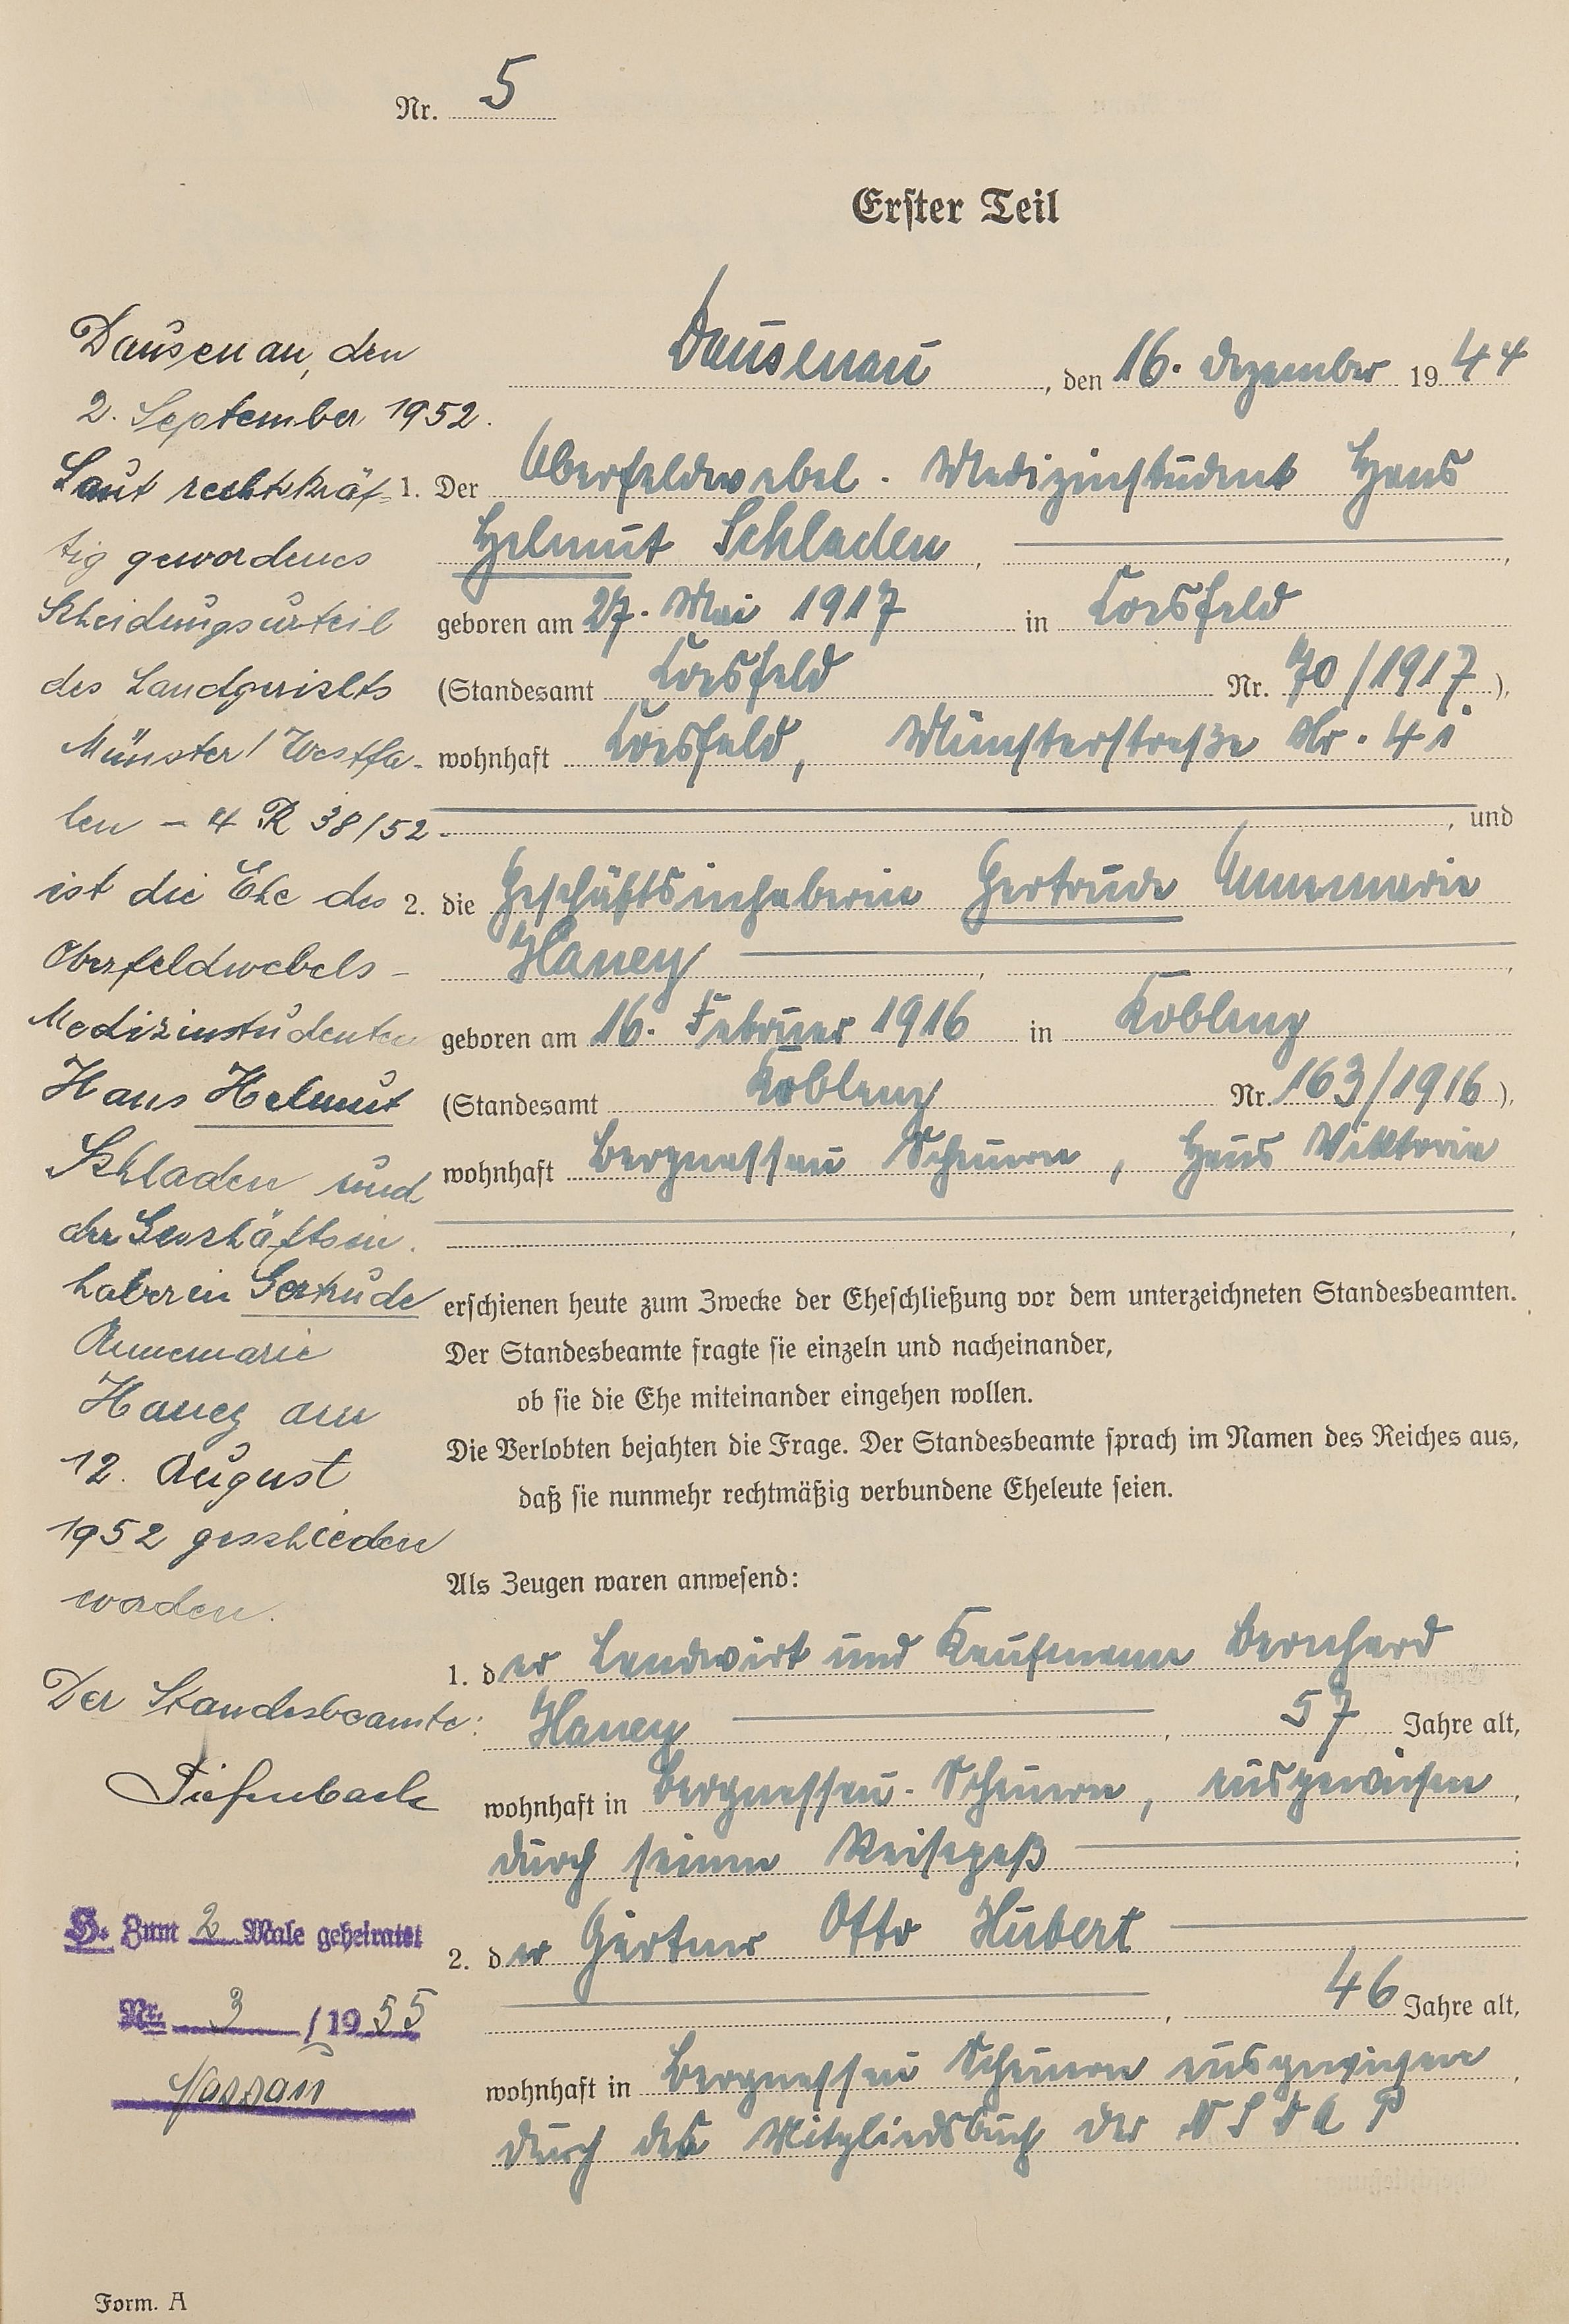 Nr. 5
Erster Teil
Dausenau, den 16. Dezember 1944
1. Der Oberfeldwebel - Medizinstudent Hans
Helmut Schladen,
geboren am 27. Mai 1917 in Coesfeld
(Standesamt Coesfeld Nr. 70/1917),
wohnhaft Coesfeld, Münsterstraße Nr. 4
, und
2. die Geschäftsinhaberin Gertrude Annemarie
Haney,
geboren am 16. Februar 1916 in Koblenz
(Standesamt Koblenz Nr. 163/1916),
wohnhaft Bergnassau Scheuern, Haus Viktoria
erschienen heute zum Zwecke der Eheschließung vor dem unterzeichneten Standesbeamten.
Der Standesbeamte fragte sie einzeln und nacheinander,
ob sie die Ehe miteinander eingehen wollen.
Die Verlobten bejahten die Frage. Der Standesbeamte sprach im Namen des Reiches aus,
daß sie nunmehr rechtmäßig verbundene Eheleute seien.
Als Zeugen waren anwesend:
1. der Landwirt und Kaufmann Bernhard
Haney, 57 Jahre alt,
wohnhaft in Bergnassau-Scheuern, ausgewiesen,
durch seinen Reisepaß;
2. der Gärtner Otto Hubert
, 46 Jahre alt,
wohnhaft in Bergnassau Scheuern ausgewiesen,
durch das Mitgliedsbuch der NSDAP
Dausenau, den
2. September 1952.
Laut rechtskräf-
tig gewordenes
Scheidungsurteil
des Landgerichts
Münster/Westfa-
len - 4 R 38/52 -
ist die Ehe des
Oberfeldwebels -
Medizinstudenten
Hans Helmut
Schladen und
der Geschäftsin-
haberin Gertrude
Annemarie
Haney am
12. August
1952 geschieden
worden.
Der Standesbeamte:
Tiefenbach
H. Zum 2 Male geheiratet
Nr. 3 / 1955
Nassau
Form. A